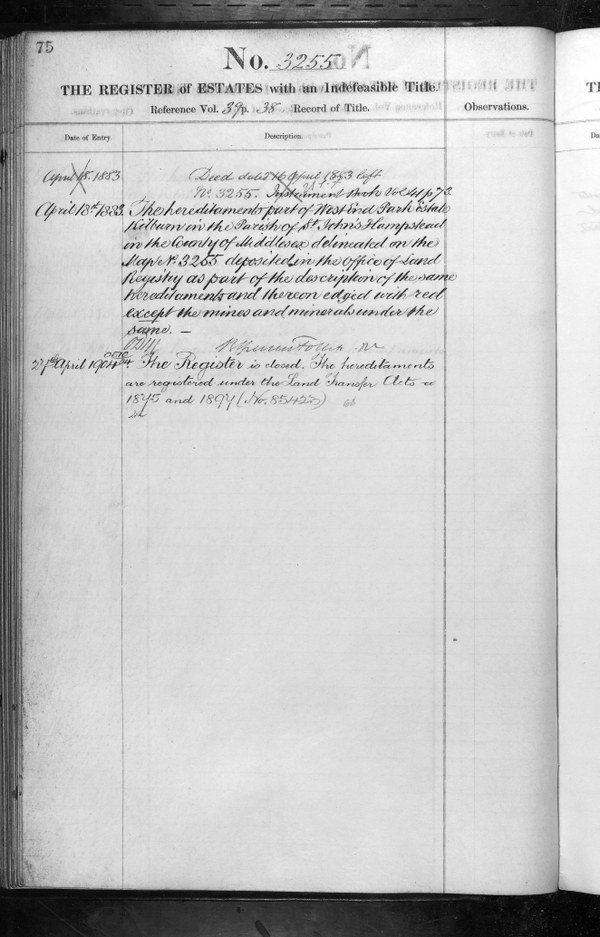 75
No. 3255
THE REGISTER of ESTATES with an Indefeasible Title.
Reference Vol. 39 p. 38 Record of Title.
Observations.
Date of Entry.
Description.
April 18. 1883
Deed dated 16 April 1883 left
No. 3255. Instrument Book Vol. 41 p 73.
April 18th 1883.
The hereditaments part of West End Park Estate
Kilburn in the Parish of St John's Hampstead
in the County of Middlesex delineated on the
Map No. 3255 deposited in the Office of Land
Registry as part of the description of the same
hereditaments and thereon edged with red
except the mines and minerals under the
same. —
27th April 1904
The Register is closed. The hereditaments
are registered under the Land Transfer Acts
1875 and 1897 (No. 85422)